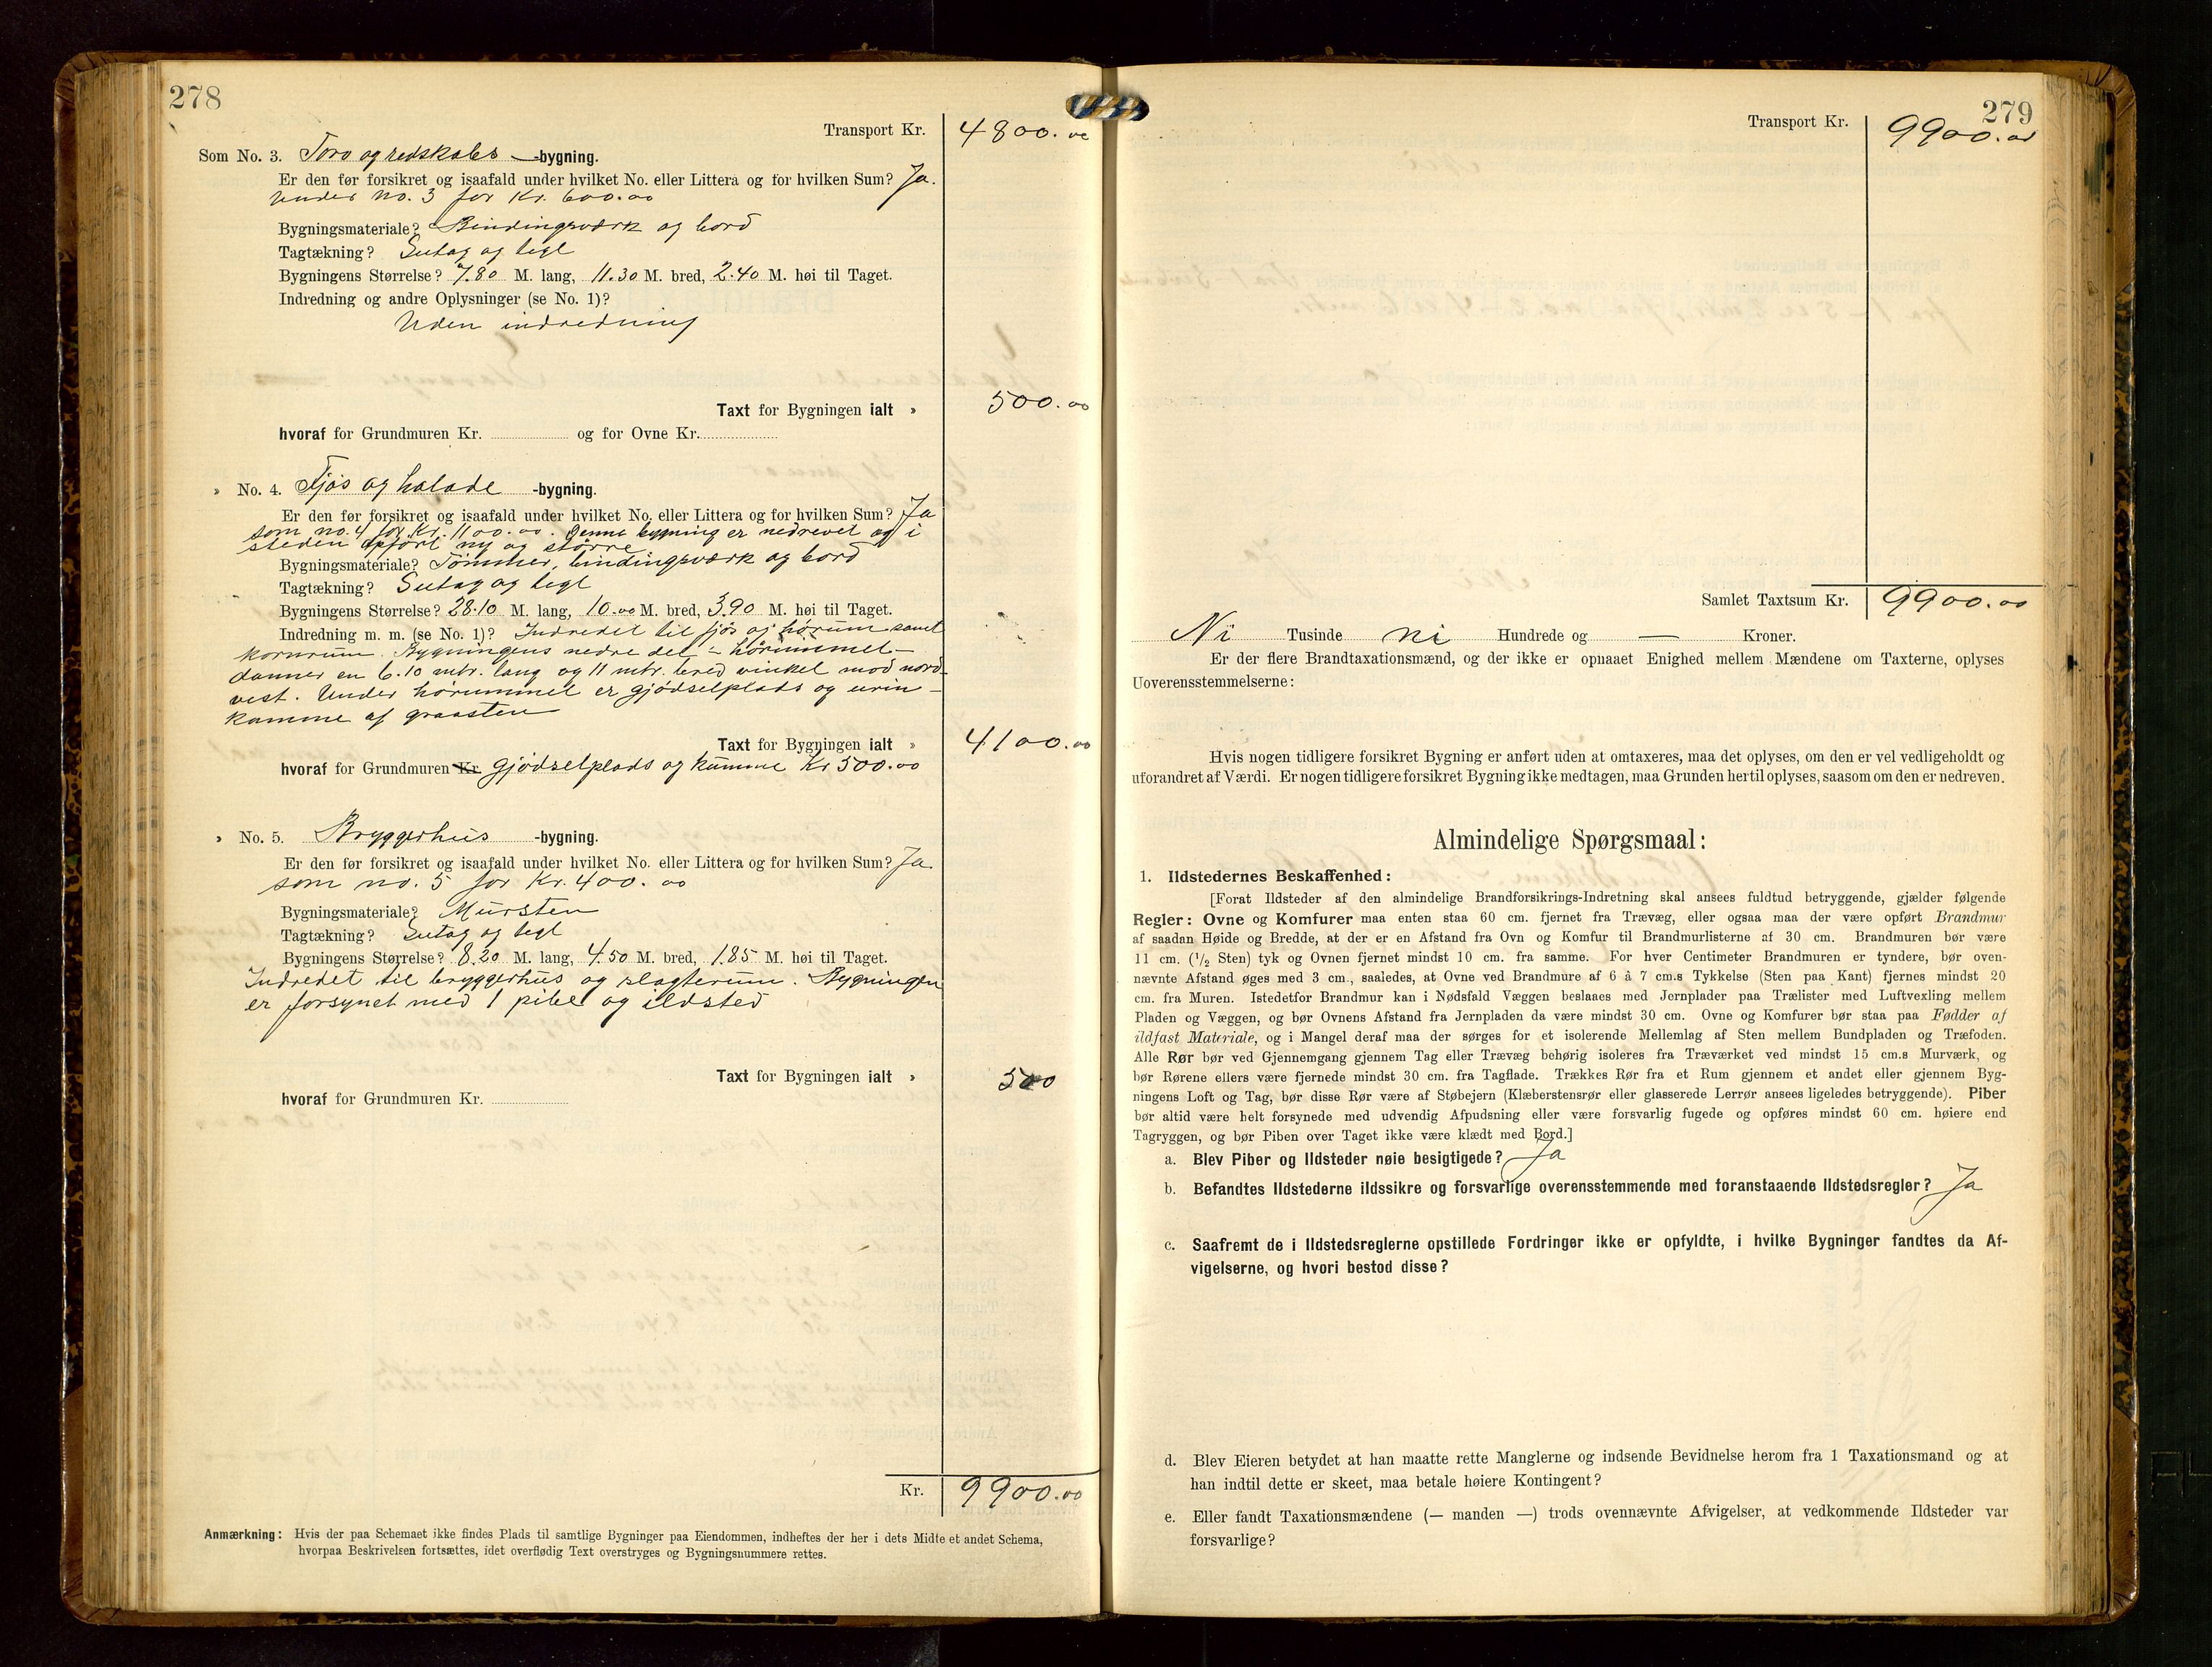 278
Transport Kr. 4800.00
Som No. 3. Torv og redskabs -bygning.
Er den før forsikret og isaafald under hvilket No. eller Littera og for hvilken Sum? Ja.
under no. 3 for Kr. 600.00
Bygningsmateriale? Bindingsværk og bord
Tagtækning? Sutag og tegl
Bygningens Størrelse? 7.80 M. lang, 11.30 M. bred, 2.40 M. høi til Taget.
Indredning og andre Oplysninger (se No. 1)?
Uden indredning
Taxt for Bygningen ialt » 500.00
hvoraf for Grundmuren Kr. og for Ovne Kr.
» No. 4. Fjøs og hølade -bygning.
Er den før forsikret og isaafald under hvilket No. eller Littera og for hvilken Sum? Ja
som no. 4 for Kr. 1100.00. Denne bygning er nedrevet og i
steden opført ny og større
Bygningsmateriale? Tømmer, bindingsværk og bord
Tagtækning? Sutag og tegl
Bygningens Størrelse? 28.10 M. lang, 10.00 M. bred, 3.90 M. høi til Taget.
Indredning m. m. (se No. 1)? Indredet til fjøs og hørum samt
kornrum. Bygningens nedre del – hørummet –
danner en 6.10 mtr. lang og 11 mtr. bred vinkel mod nord-
vest. Under hørummet er gjødselplads og urin-
kumme af graasten
Taxt for Bygningen ialt » 4100.00
hvoraf for Grundmuren Kr. gjødselplads og kumme Kr 500.00
» No. 5. Bryggerhus -bygning.
Er den før forsikret og isaafald under hvilket No. eller Littera og for hvilken Sum? Ja
som no. 5 for Kr. 400.00
Bygningsmateriale? Mursten
Tagtækning? Sutag og tegl
Bygningens Størrelse? 8.20 M. lang, 4.50 M. bred, 1.85 M. høi til Taget.
Indredet til bryggerhus og slagterum. Bygningen
er forsynet med 1 pibe og ildsted
Taxt for Bygningen ialt » 500
hvoraf for Grundmuren Kr.
Kr. 9900.00
Anmærkning: Hvis der paa Schemaet ikke findes Plads til samtlige Bygninger paa Eiendommen, indheftes der her i dets Midte et andet Schema,
hvorpaa Beskrivelsen fortsættes, idet overflødig Text overstryges og Bygningsnummere rettes.
279
Transport Kr. 9900.00
Samlet Taxtsum Kr. 9900.00
Ni Tusinde ni Hundrede og — Kroner.
Er der flere Brandtaxationsmænd, og der ikke er opnaaet Enighed mellem Mændene om Taxterne, oplyses
Uoverensstemmelserne:
Hvis nogen tidligere forsikret Bygning er anført uden at omtaxeres, maa det oplyses, om den er vel vedligeholdt og
uforandret af Værdi. Er nogen tidligere forsikret Bygning ikke medtagen, maa Grunden hertil oplyses, saasom om den er nedreven.
Almindelige Spørgsmaal:
1. Ildstedernes Beskaffenhed:
[Forat Ildsteder af den almindelige Brandforsikrings-Indretning skal ansees fuldtud betryggende, gjælder følgende
Regler: Ovne og Komfurer maa enten staa 60 cm. fjernet fra Trævæg, eller ogsaa maa der være opført Brandmur
af saadan Høide og Bredde, at der er en Afstand fra Ovn og Komfur til Brandmurlisterne af 30 cm. Brandmuren bør være
11 cm. (1/2 Sten) tyk og Ovnen fjernet mindst 10 cm. fra samme. For hver Centimeter Brandmuren er tyndere, bør oven-
nævnte Afstand øges med 3 cm., saaledes, at Ovne ved Brandmure af 6 à 7 cm.s Tykkelse (Sten paa Kant) fjernes mindst 20
cm. fra Muren. Istedetfor Brandmur kan i Nødsfald Væggen beslaaes med Jernplader paa Trælister med Luftvexling mellem
Pladen og Væggen, og bør Ovnens Afstand fra Jernpladen da være mindst 30 cm. Ovne og Komfurer bør staa paa Fødder af
ildfast Materiale, og i Mangel deraf maa der sørges for et isolerende Mellemlag af Sten mellem Bundpladen og Træfoden.
Alle Rør bør ved Gjennemgang gjennem Tag eller Trævæg behørig isoleres fra Træværket ved mindst 15 cm.s Murværk, og
bør Rørene ellers være fjernede mindst 30 cm. fra Tagflade. Trækkes Rør fra et Rum gjennem et andet eller gjennem Byg-
ningens Loft og Tag, bør disse Rør være af Støbejern (Klæberstensrør eller glasserede Lerrør ansees ligeledes betryggende). Piber
bør altid være helt forsynede med udvendig Afpudsning eller være forsvarlig fugede og opføres mindst 60 cm. høiere end
Tagryggen, og bør Piben over Taget ikke være klædt med Bord.]
a. Blev Piber og Ildsteder nøie besigtigede? Ja
b. Befandtes Ildstederne ildssikre og forsvarlige overensstemmende med foranstaaende Ildstedsregler? Ja
c. Saafremt de i Ildstedsreglerne opstillede Fordringer ikke er opfyldte, i hvilke Bygninger fandtes da Af-
vigelserne, og hvori bestod disse?
d. Blev Eieren betydet at han maatte rette Manglerne og indsende Bevidnelse herom fra 1 Taxationsmand og at
han indtil dette er skeet, maa betale høiere Kontingent?
e. Eller fandt Taxationsmændene (— manden —) trods ovennævnte Afvigelser, at vedkommende Ildsteder var
forsvarlige?